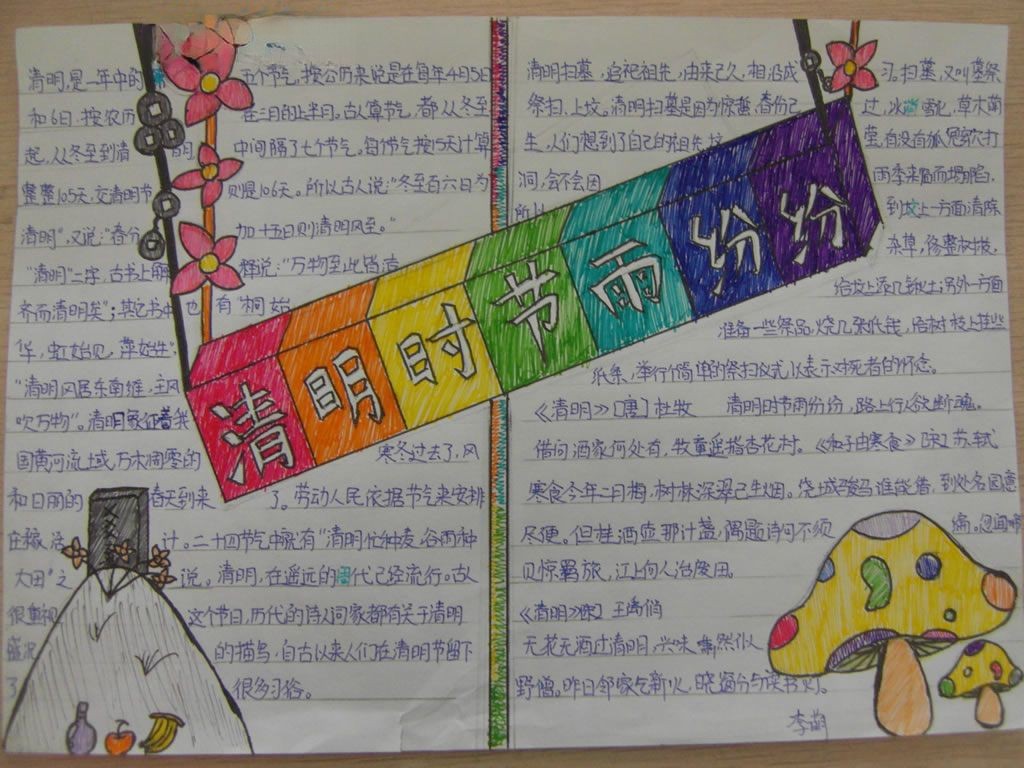 清明时节雨纷纷
清明,是一年中的 五个节气,按公历来说是在每年4月5日
和6日,按农历 在三月的上半月。古人算节气,都从冬至
起,从冬至到清明, 中间隔了七个节气。每个节气按15天计算
整整105天,交清明节 则是106天。所以古人说:"冬至百六日为
清明",又说:"春分 加十五日则清明风至。"
"清明"二字,古书上 释说:"万物至此皆洁
齐而清明矣";其它书中也有"桐始
华,虹始见,萍始生",
"清明风居东南维,主风
吹万物"。清明象征着我
国黄河流域,万木凋零的 寒冬过去了,风
和日丽的 春天到来了。劳动人民依据节气来安排
庄稼活 计。二十四节气中就有"清明忙种麦,谷雨种
大田"之 说。清明,在遥远的周代已经流行。古人
很重视 这个节日,历代的诗人词家都有关于清明
盛况 的描写,自古以来人们在清明节留下
了 很多习俗。
清明扫墓,追祀祖先,由来已久,相沿成 习。扫墓,又叫墓祭
祭扫、上坟。清明扫墓是因为 过,冰 雪化,草木萌
生,人们想到了自己的祖先坟 茔,有没有狐兔穿穴打
洞,会不会因 雨季来临而塌陷,
所以 到坟上一方面清除
杂草,修整树枝,
给坟上添几锹土;另外一方面
准备一些祭品,烧几张纸钱,给树枝上挂些
纸条,举行个简单的祭扫仪式,以表示对死者的怀念。
《清明》〔唐〕杜牧 清明时节雨纷纷,路上行人欲断魂。
借问酒家何处有,牧童遥指杏花村。《和子由寒食》〔宋〕苏轼
寒食今年二月梢,树林深翠已生烟。绕城骏马谁能借,到处名园意
尽便。但挂酒壶那计盏,偶题诗句不须 编。忽闻啼
贝惊羁旅,江上何人治废田。
《清明》〔宋〕王禹俏
无花无酒过清明,兴味 然似
野僧。昨日邻家乞新火,晓窗分与读书灯。
李萌